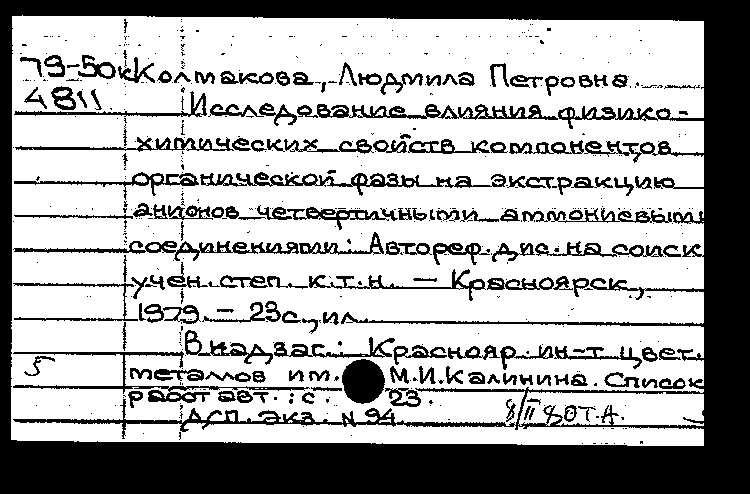 79-50к Колмакова, Людмила Петровна.
4811 Исследование влияния физико-
химических свойств компонентов
органической фазы на экстракцию
анионов четвертичными аммониевыми
соединениями: Автореф. дис. на соиск
учен. степ. к.т.н. — Красноярск,
1979. — 23с., ил.
В надзаг.: Краснояр. ин-т цвет.
5 металлов им. М.И.Калинина. Список
работ авт.: с. 23.
Д/П. экз. N 94.